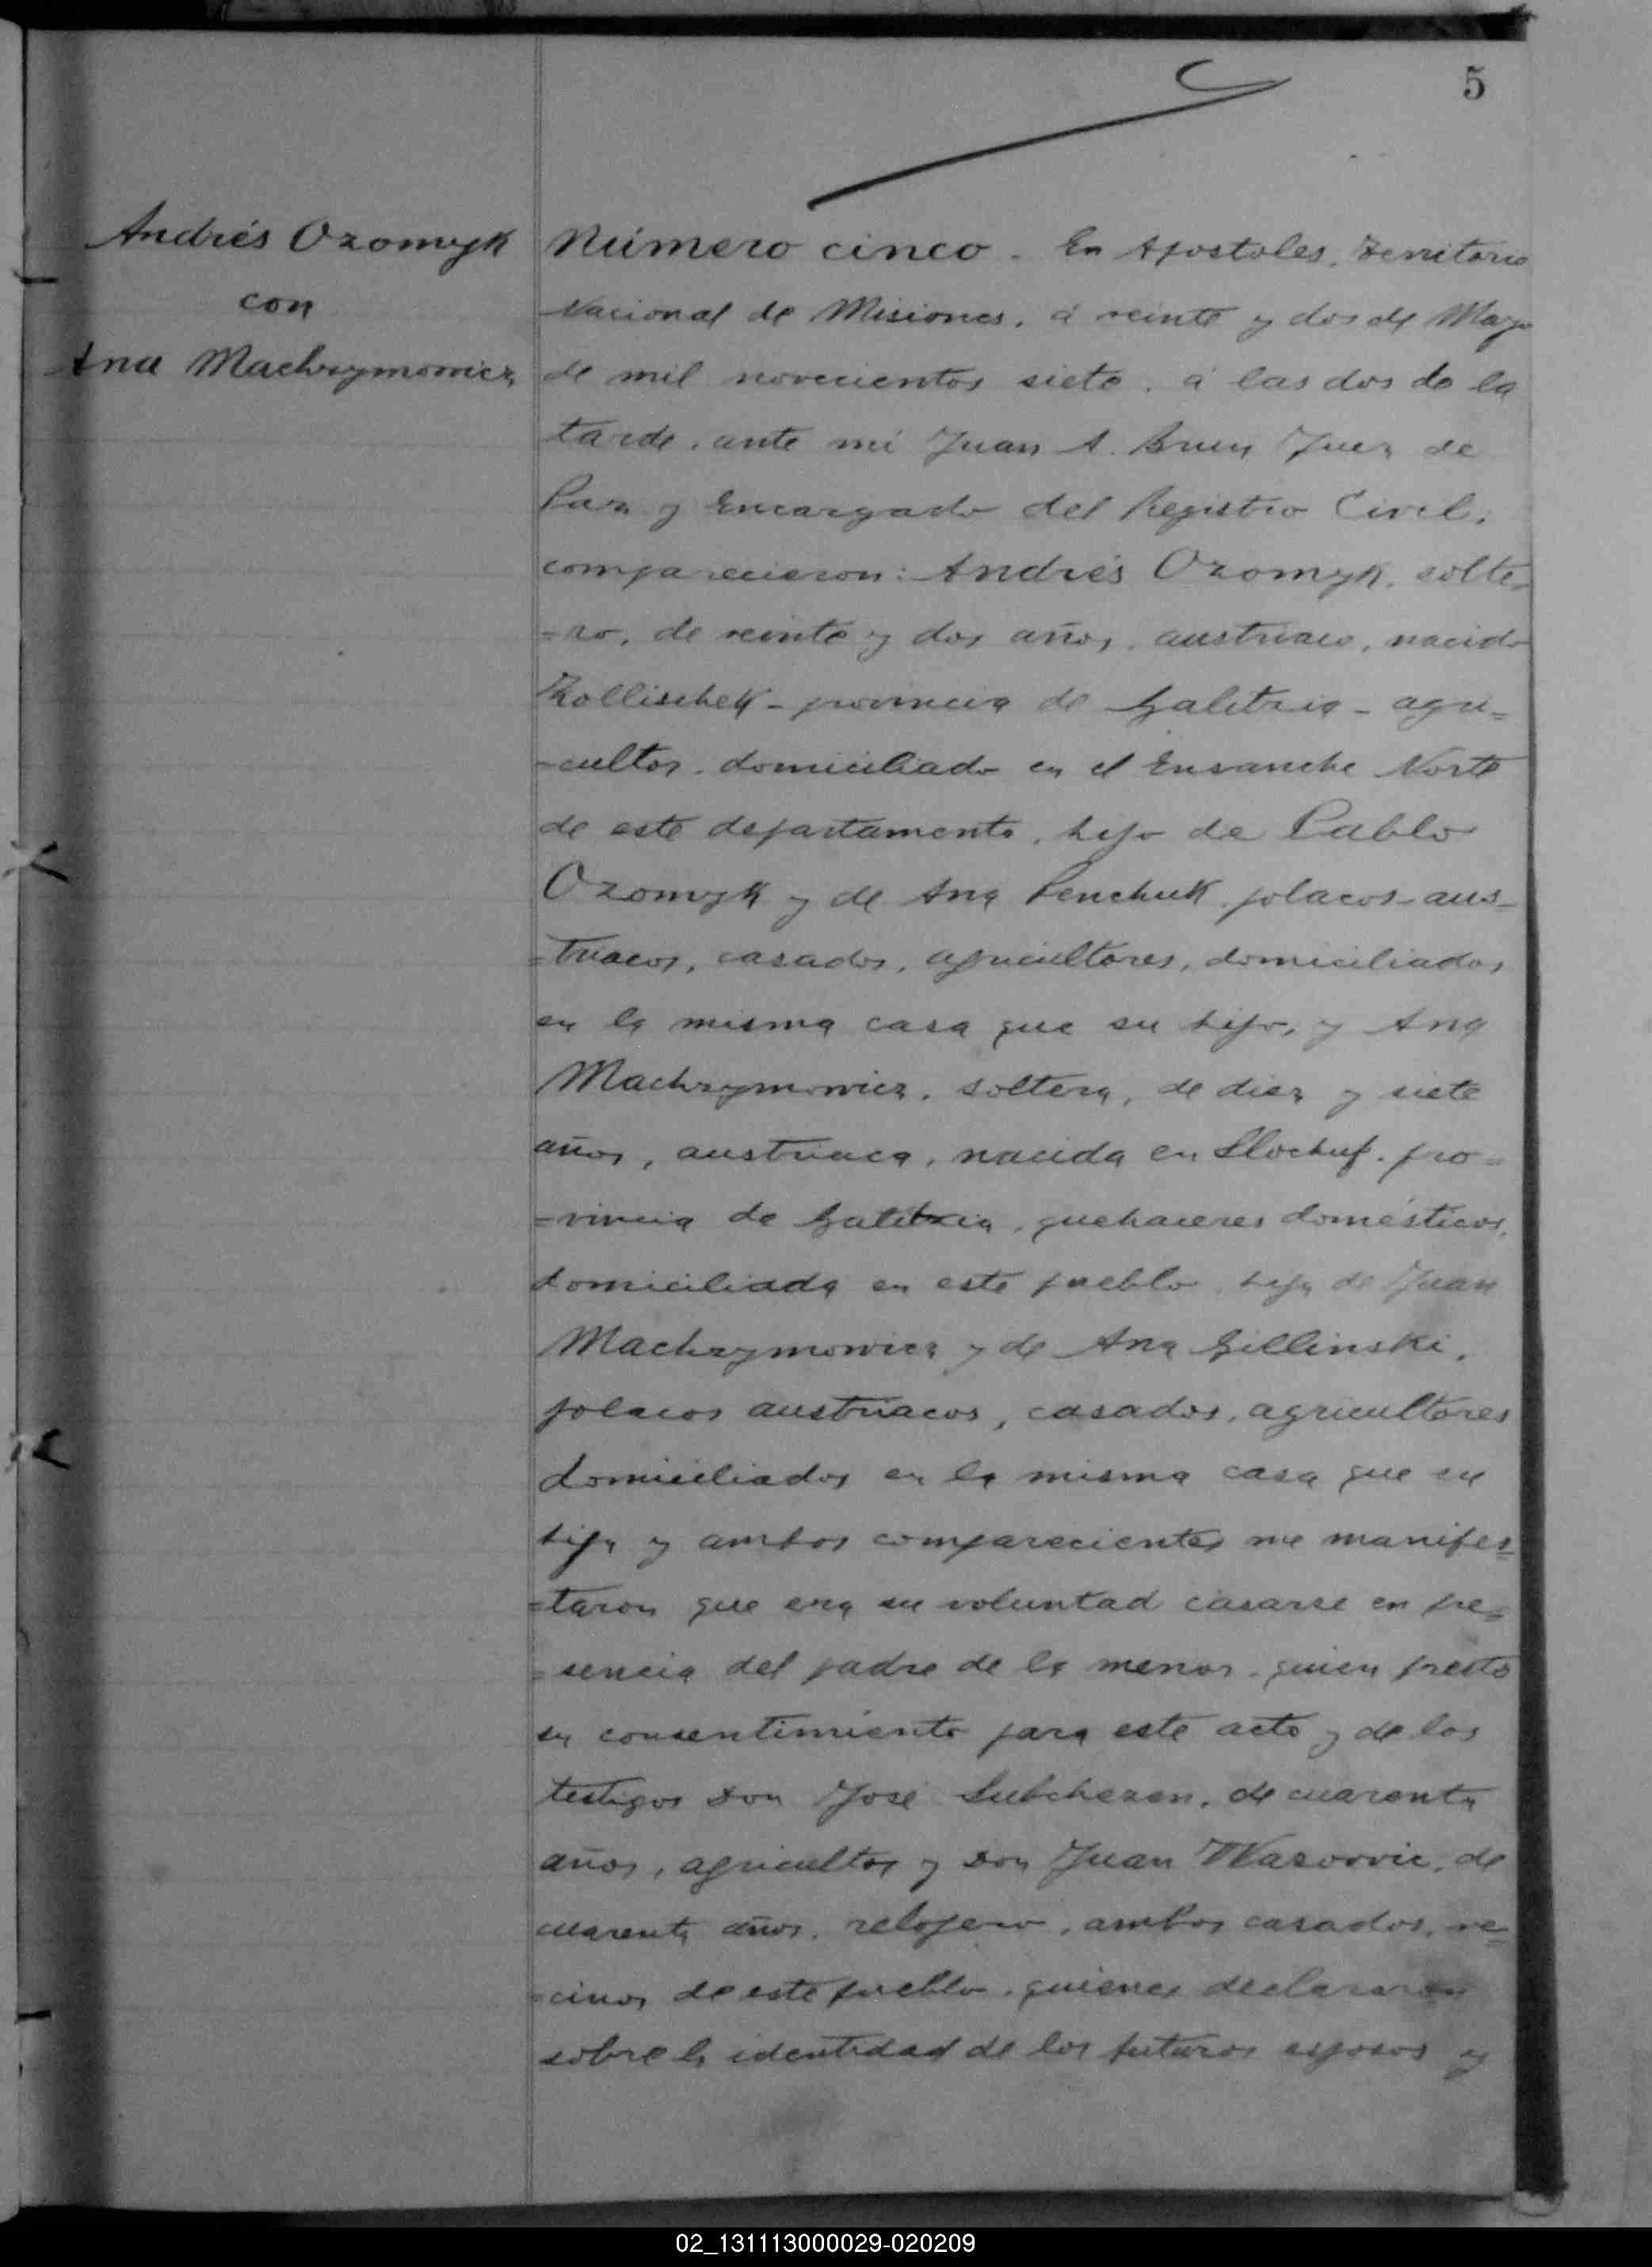 5
Andrés Ozomyk
con
Ana Machrymowicz
Número cinco. En Apostoles, Territorio
Nacional de Misiones, á veinte y dos de Mayo
de mil novecientos siete, á las dos de la
tarde, ante mi Juan A. Brun Juez de
Paz y Encargado del Registro Civil,
comparecieron: Andrés Ozomyk, solte-
=ro, de veinte y dos años, austriaco, nacido
Zollischek - provincia de Galitzia - agri=
-cultor, domiciliado en el Ensanche Norte
de este departamento, hijo de Pablo
Ozomyk y de Ana Penchuk, polacos-aus-
=triacos, casados, agricultores, domiciliados
en la misma casa que su hijo, y Ana
Machrymowicz, soltera, de diez y siete
años, austriaca, nacida en Slochuf, pro=
=vincia de Galitzia, quehaceres domésticos,
domiciliada en este pueblo, hija de Juan
Machrymowicz y de Ana Gillinski,
polacos austriacos, casados, agricultores
domiciliados en la misma casa que su
hija y ambos comparecientes me manifes=
=taron que era su voluntad casarse en pre=
=sencia del padre de la menor, quien prestó
su consentimiento para este acto y de los
testigos Don José Subchezen, de cuarenta
años, agricultor y Don Juan Wasovvic, de
cuarenta años, relojero, ambos casados, ve=
=cinos de este pueblo, quienes declararon
sobre la identidad de los futuros esposos y
02_131113000029-020209